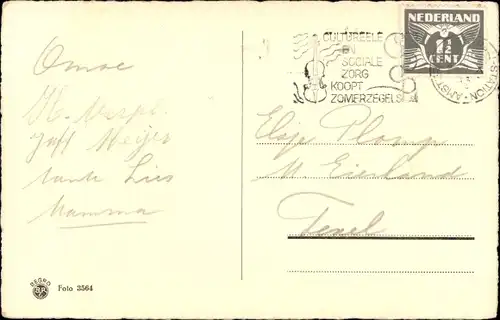 Omoe
Juff Meijer
tante Lies
Mamma
CULTUREELE
EN
SOCIALE
ZORG
KOOPT
ZOMERZEGELS
NEDERLAND
1½
CENT
STATION
Elsje Plomp
Eierland
Texel
Foto 3564